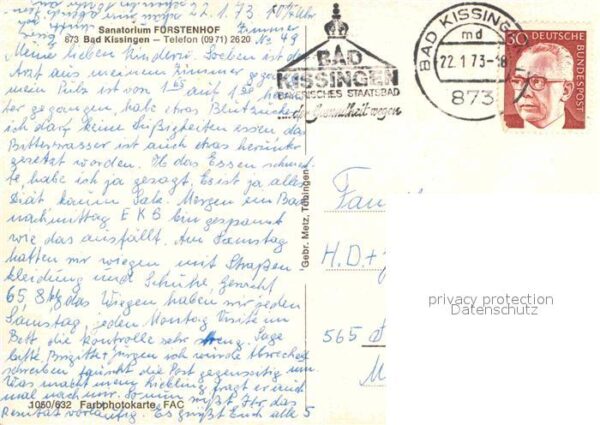 22.1.73 10 Uhr
Sanatorium FÜRSTENHOF
873 Bad Kissingen – Telefon (0971) 2620
Zimmer
No. 49
Meine lieben Kinder. Soeben ist der
Arzt aus meinem Zimmer gegangen
mein Puls ist von
ter gegangen, habe etwas Blutzucker
ich darf keine Süßigkeiten essen das
Bitterwasser ist auch etwas herunter
gesetzt worden. Ob das Essen schmeck
te, habe ich ja gesagt. Es ist ja alles
Diät kaum Salz. Morgen ein Bad
nachmittag EKG bin gespannt
wie das ausfällt. Am Samstag
hatten wir wiegen mit Straßen
kleidung und Schuhe, Gewicht
65,8 kg das Wiegen haben wir jeden
Samstag, jeden Montag Visite im
Bett die Kontrolle sehr streng. Sage
bitte Brigitte + Jürgen ich würde
schreiben tauscht die Post gegenseitig um
Was macht mein Liebling fragt er
mal nach So nun wißt Ihr das
Resultat vorläufig. Es grüßt Euch alle 5
1050/632 Farbphotokarte FAC
Gebr. Metz, Tübingen
BAD
KISSINGEN
BAYERISCHES STAATSBAD
...der Gesundheit wegen
BAD KISSINGEN
md
22.1.73-18
873
30 DEUTSCHE
BUNDESPOST
Fam
H.D+
565
privacy protection
Datenschutz